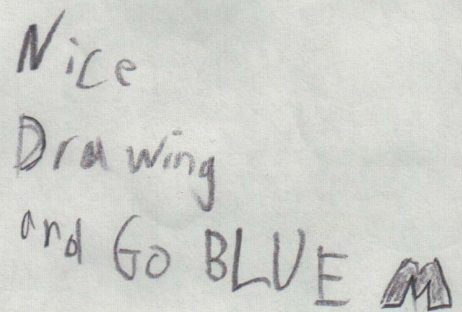 Nice
Drawing
and Go BLUE M